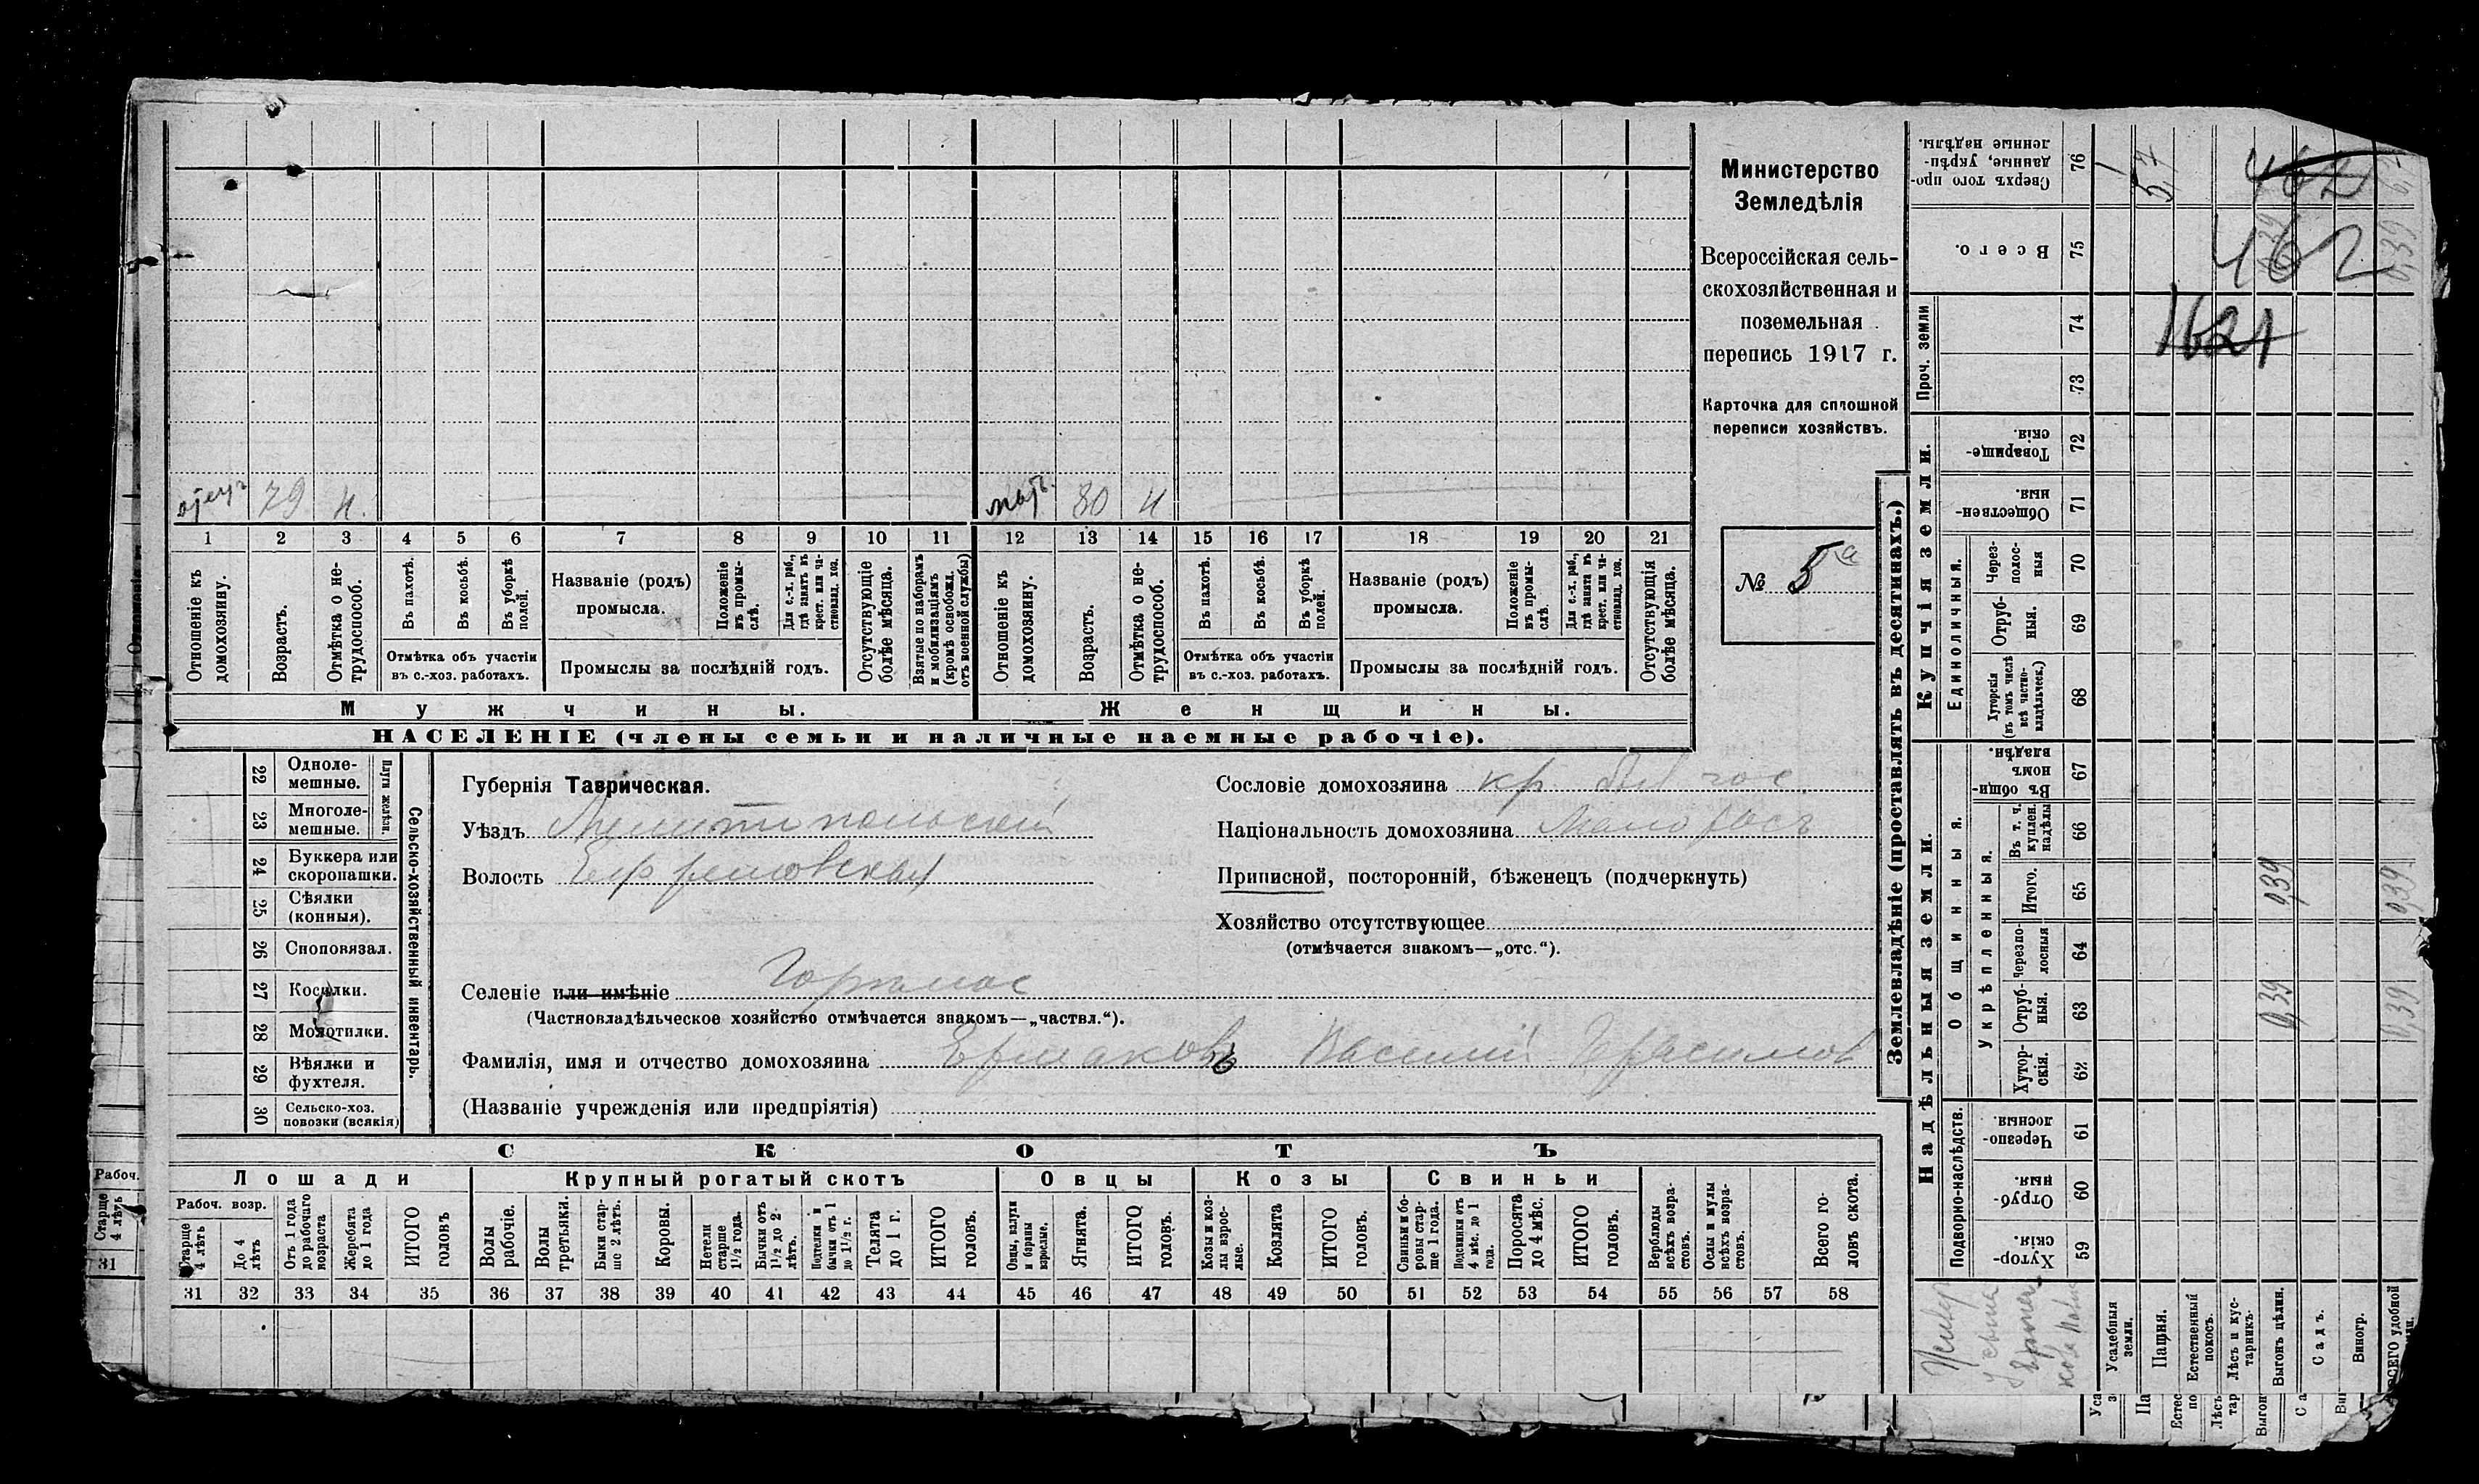 Министерство
Земледѣлія
Всероссійская сель-
скохозяйственная и
поземельная
перепись 1917 г.
Карточка для сплошной
переписи хозяйствъ.
№ 5а
отецъ 79 н. мать. 80 н
1 2 3 4 5 6 7 8 9 10 11 12 13 14 15 16 17 18 19 20 21
Отношеніе къ домохозяину.
Возрастъ.
Отмѣтка о не-трудоспособ.
Въ пахотѣ.
Въ косьбѣ.
Въ уборкѣ полей.
Отмѣтка объ участіи
въ с.-хоз. работахъ.
Названіе (родъ)
промысла.
Положеніе въ промы-слѣ.
Для с.-х. раб., гдѣ занятъ въ крест. или ча-стновлад. хоз.
Промыслы за послѣдній годъ.
Отсутствующіе болѣе мѣсяца.
Взятые по наборамъ и мобилизаціямъ (кромѣ освобожд. отъ военной службы)
Отношеніе къ домохозяину.
Возрастъ.
Отмѣтка о не-трудоспособ.
Въ пахотѣ.
Въ косьбѣ.
Въ уборкѣ полей.
Отмѣтка объ участіи
въ с.-хоз. работахъ.
Названіе (родъ)
промысла.
Положеніе въ промы-слѣ.
Для с.-х. раб., гдѣ занята въ крест. или ча-стновлад. хоз.
Промыслы за послѣдній годъ.
Отсутствующія болѣе мѣсяца.
Мужчины. Женщины.
НАСЕЛЕНІЕ (члены семьи и наличные наемные рабочіе).
22 Одноле-мешные.
23 Многоле-мешные.
Плуги желѣзн.
24 Буккера или скоропашки.
25 Сѣялки (конныя).
26 Сноповязал.
27 Косилки.
28 Молотилки.
29 Вѣялки и фухтеля.
30 Сельско-хоз. повозки (всякія)
Сельско-хозяйственный инвентарь.
Губернія Таврическая.
Уѣздъ Мелитопольскій
Волость Ефремовская
Сословіе домохозяина кр. был гос.
Національность домохозяина Малоросъ
Приписной, посторонній, бѣженецъ (подчеркнуть)
Хозяйство отсутствующее
(отмѣчается знакомъ—„отс.“).
Селеніе или имѣніе Горъмос
(Частновладѣльческое хозяйство отмѣчается знакомъ—„частвл.“).
Фамилія, имя и отчество домохозяина Ермаковъ Василій Герасимов
(Названіе учрежденія или предпріятія)
СКОТЪ
Лошади Крупный рогатый скотъ Овцы Козы Свиньи
Рабоч. возр.
Старще 4 лѣтъ
До 4 лѣтъ
Отъ 1 года до рабочаго возраста
Жеребята до 1 года
ИТОГО головъ
Волы рабочіе.
Волы третьяки.
Быки стар-ше 2 лѣтъ.
Коровы.
Нетели старше 1½ года.
Бычки отъ 1½ до 2 лѣтъ.
Подтелки и бычки отъ 1 до 1½ г.
Телята до 1 г.
ИТОГО головъ.
Овцы, валухи и бараны взрослые.
Ягнята.
ИТОГО головъ.
Козы и коз-лы взрос-лые.
Козлята
ИТОГО головъ.
Свиньи и бо-ровы стар-ше 1 года.
Подсвинки отъ 4 мѣс. до 1 года.
Поросята до 4 мѣс.
ИТОГО головъ.
Верблюды всѣхъ возра-стовъ.
Ослы и мулы всѣхъ возра-стовъ.
Всего го-ловъ скота.
31 32 33 34 35 36 37 38 39 40 41 42 43 44 45 46 47 48 49 50 51 52 53 54 55 56 57 58
Рабоч.
Старще 4 лѣтъ
31
Землевладѣніе (проставлять въ десятинахъ.)
Надѣльныя земли. Купчія земли. Проч. земли
Подворно-наслѣдств.
Общинныя.
Укрѣпленныя.
Единоличныя.
Хутор-скія. 59
Отруб-ныя. 60
Черезпо-лосныя. 61
Хутор-скія. 62
Отруб-ныя. 63 0,39 0,39
Черезпо-лосныя 64
Итого. 65 0,39 0,39
Въ т. ч. куплен. надѣлы 66
Въ общи-номъ владѣн. 67
Хуторскія (въ томъ числѣ всѣ частно-владѣльческ.) 68
Отруб-ныя. 69
Через-полос-ныя 70
Обществен-ныя. 71
Товарище-скія. 72
73
74 1621
Всего. 75 0,39 462 0,39
Сверхъ того про-данные, укрѣп-ленные надѣлы. 76 5,7 462
Усадебныя земли.
Пашня.
Естественный покосъ.
Лѣсъ и кус-тарникъ.
Выгонъ цѣлин.
Садъ.
Виногр.